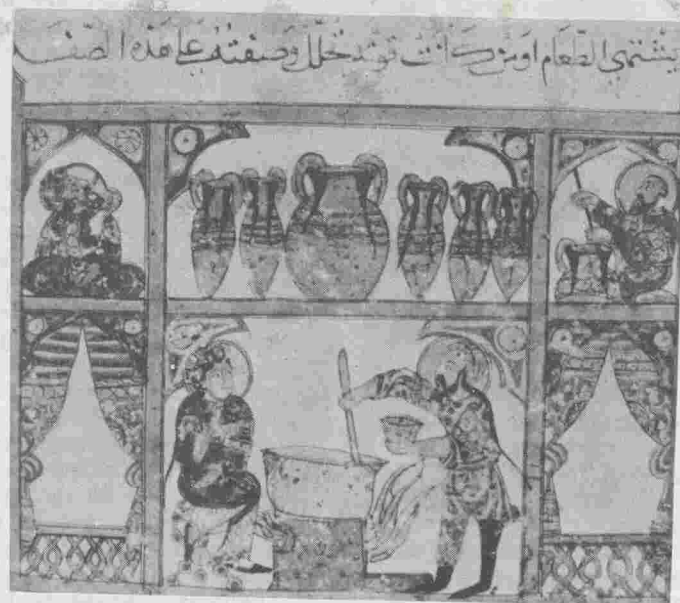 يشتهي الطعام او من كانت قوته تخلل وصفته على هذه الصفه